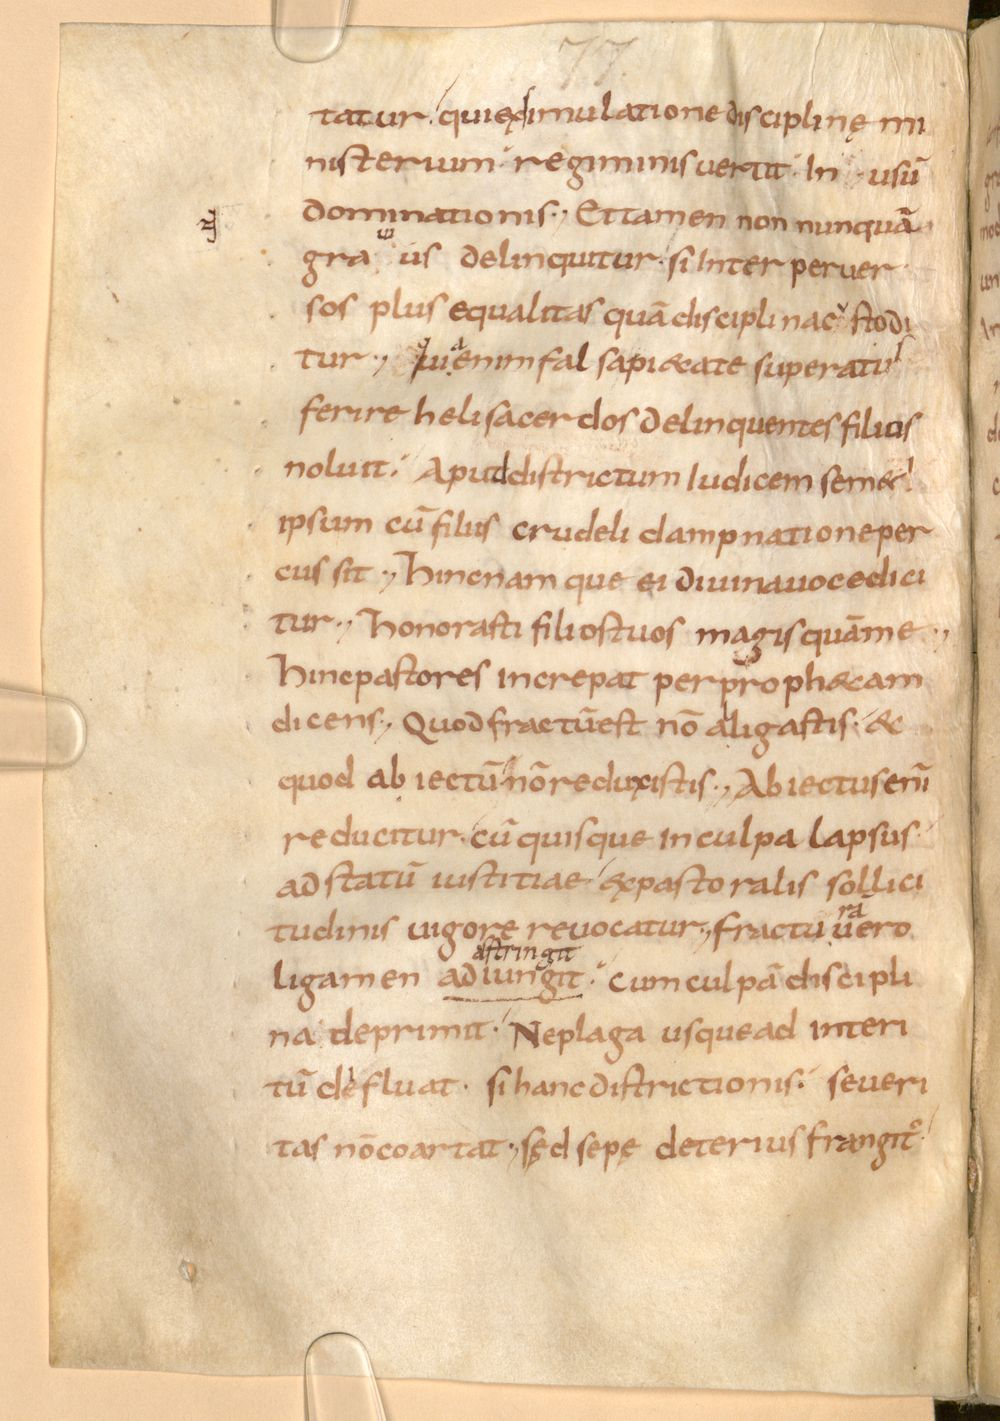 77
tatur. qui ex simulatione disciplinę mi
nisterium regiminis vertit. In usū
dominationis., Et tamen non nunquā
gra ui us delinquitur. si Inter perver
sos plus equalitas quā disciplina c̄stodi
tur., Quia enim fal sa pi&ate superatus
ferire heli sacerdos delinquentes filios
noluit. Apud districtum Iudicem sem&
ipsum cū filiis crudeli dampnatione per
cussit., Hinc nam que ei divina voce dici
tur., Honorasti filios tuos magis quā me.,
Hinc pastores increpat per proph&am
dicens., Quod fractū est nō aligastis. &
quod ab iectū nō reduxistis., Abiectus eni̅
reducitur. cū quisque in culpa lapsus.
ad statū iustitiae ex pastoralis sollici
tudinis vigore revocatur., fractu ra
vero
astringit
ligamen adiungit. Cum culpā discipli
na deprimit. Ne plaga usque ad interi
tū defluat. si hanc districtionis. severi
tas nō coartat., sęd sepę deterius frangit᷑